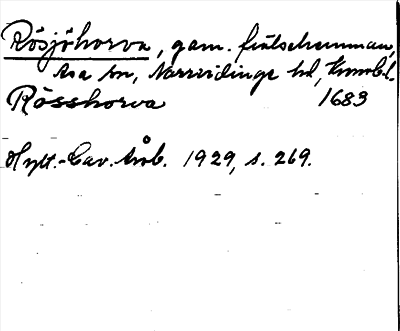 Rösjöhorva, gam. fiätschemman,
Asa sn, Norrvidinge hd, Kronob. l.
Rösshorva 1683
Hylt.-Cav. årsb. 1929, s. 269.